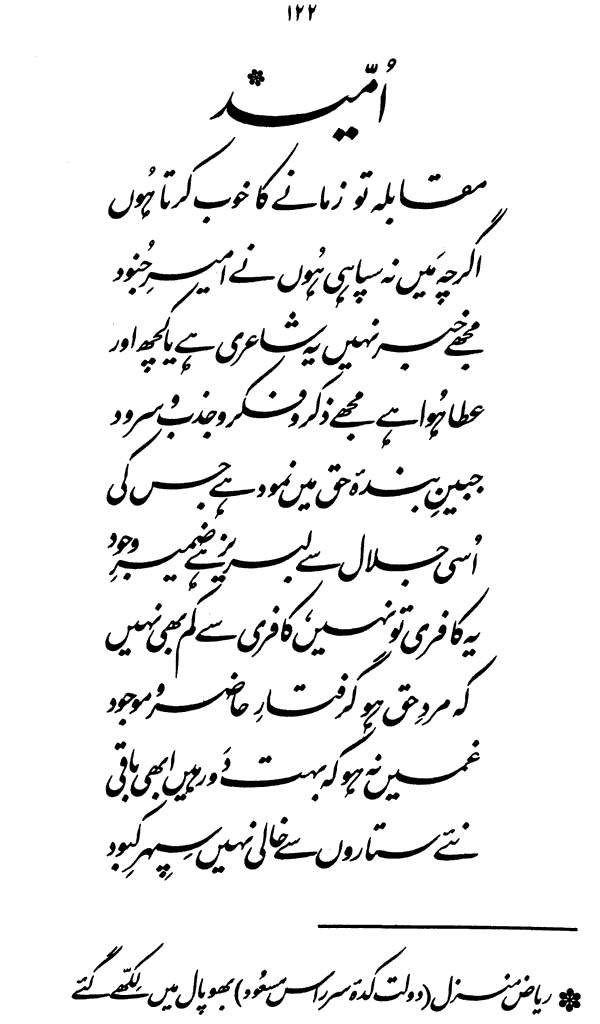 ۱۲۲
اُمّید *
مقابلہ تو زمانے کا خوب کرتا ہُوں
اگرچہ مَیں نہ سپاہی ہُوں نے امیرِ جُنود
مجھے خبر نہیں یہ شاعری ہے یا کچھ اور
عطا ہُوا ہے مجھے ذکر و فکر و جذب و سرود
جبینِ بندۂ حق میں نمود ہے جس کی
اُسی جلال سے لبریز ہے ضمیرِ وجود
یہ کافری تو نہیں، کافری سے کم بھی نہیں
کہ مردِ حق ہو گرفتارِ حاضر و موجود
غمیں نہ ہو کہ بہت دَور ہیں ابھی باقی
نئے ستاروں سے خالی نہیں سپہرِ کبود
* ریاض منزل (دولت کدۂ سر راس مسعُود) بھوپال میں لکھّے گئے